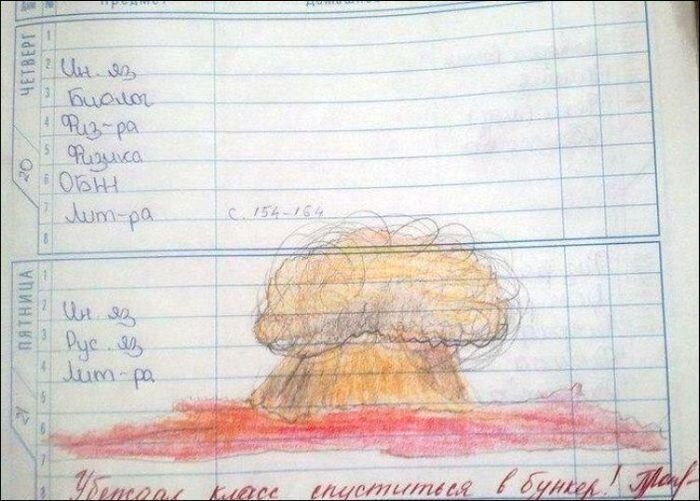 № Предмет
ЧЕТВЕРГ
20
1
2 Ин. яз
3 Биолог
4 Физ-ра
5 Физика
6 ОБЖ
7 Лит-ра с. 154-164
8
ПЯТНИЦА
21
1
2 Ин. яз
3 Рус. яз
4 Лит-ра
5
6
7
Убеждал класс спуститься в бункер!